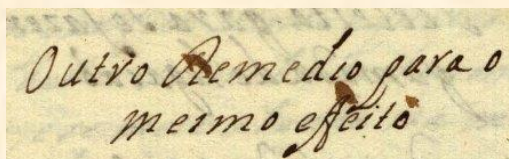 Outro Remedio para o
mesmo effeito